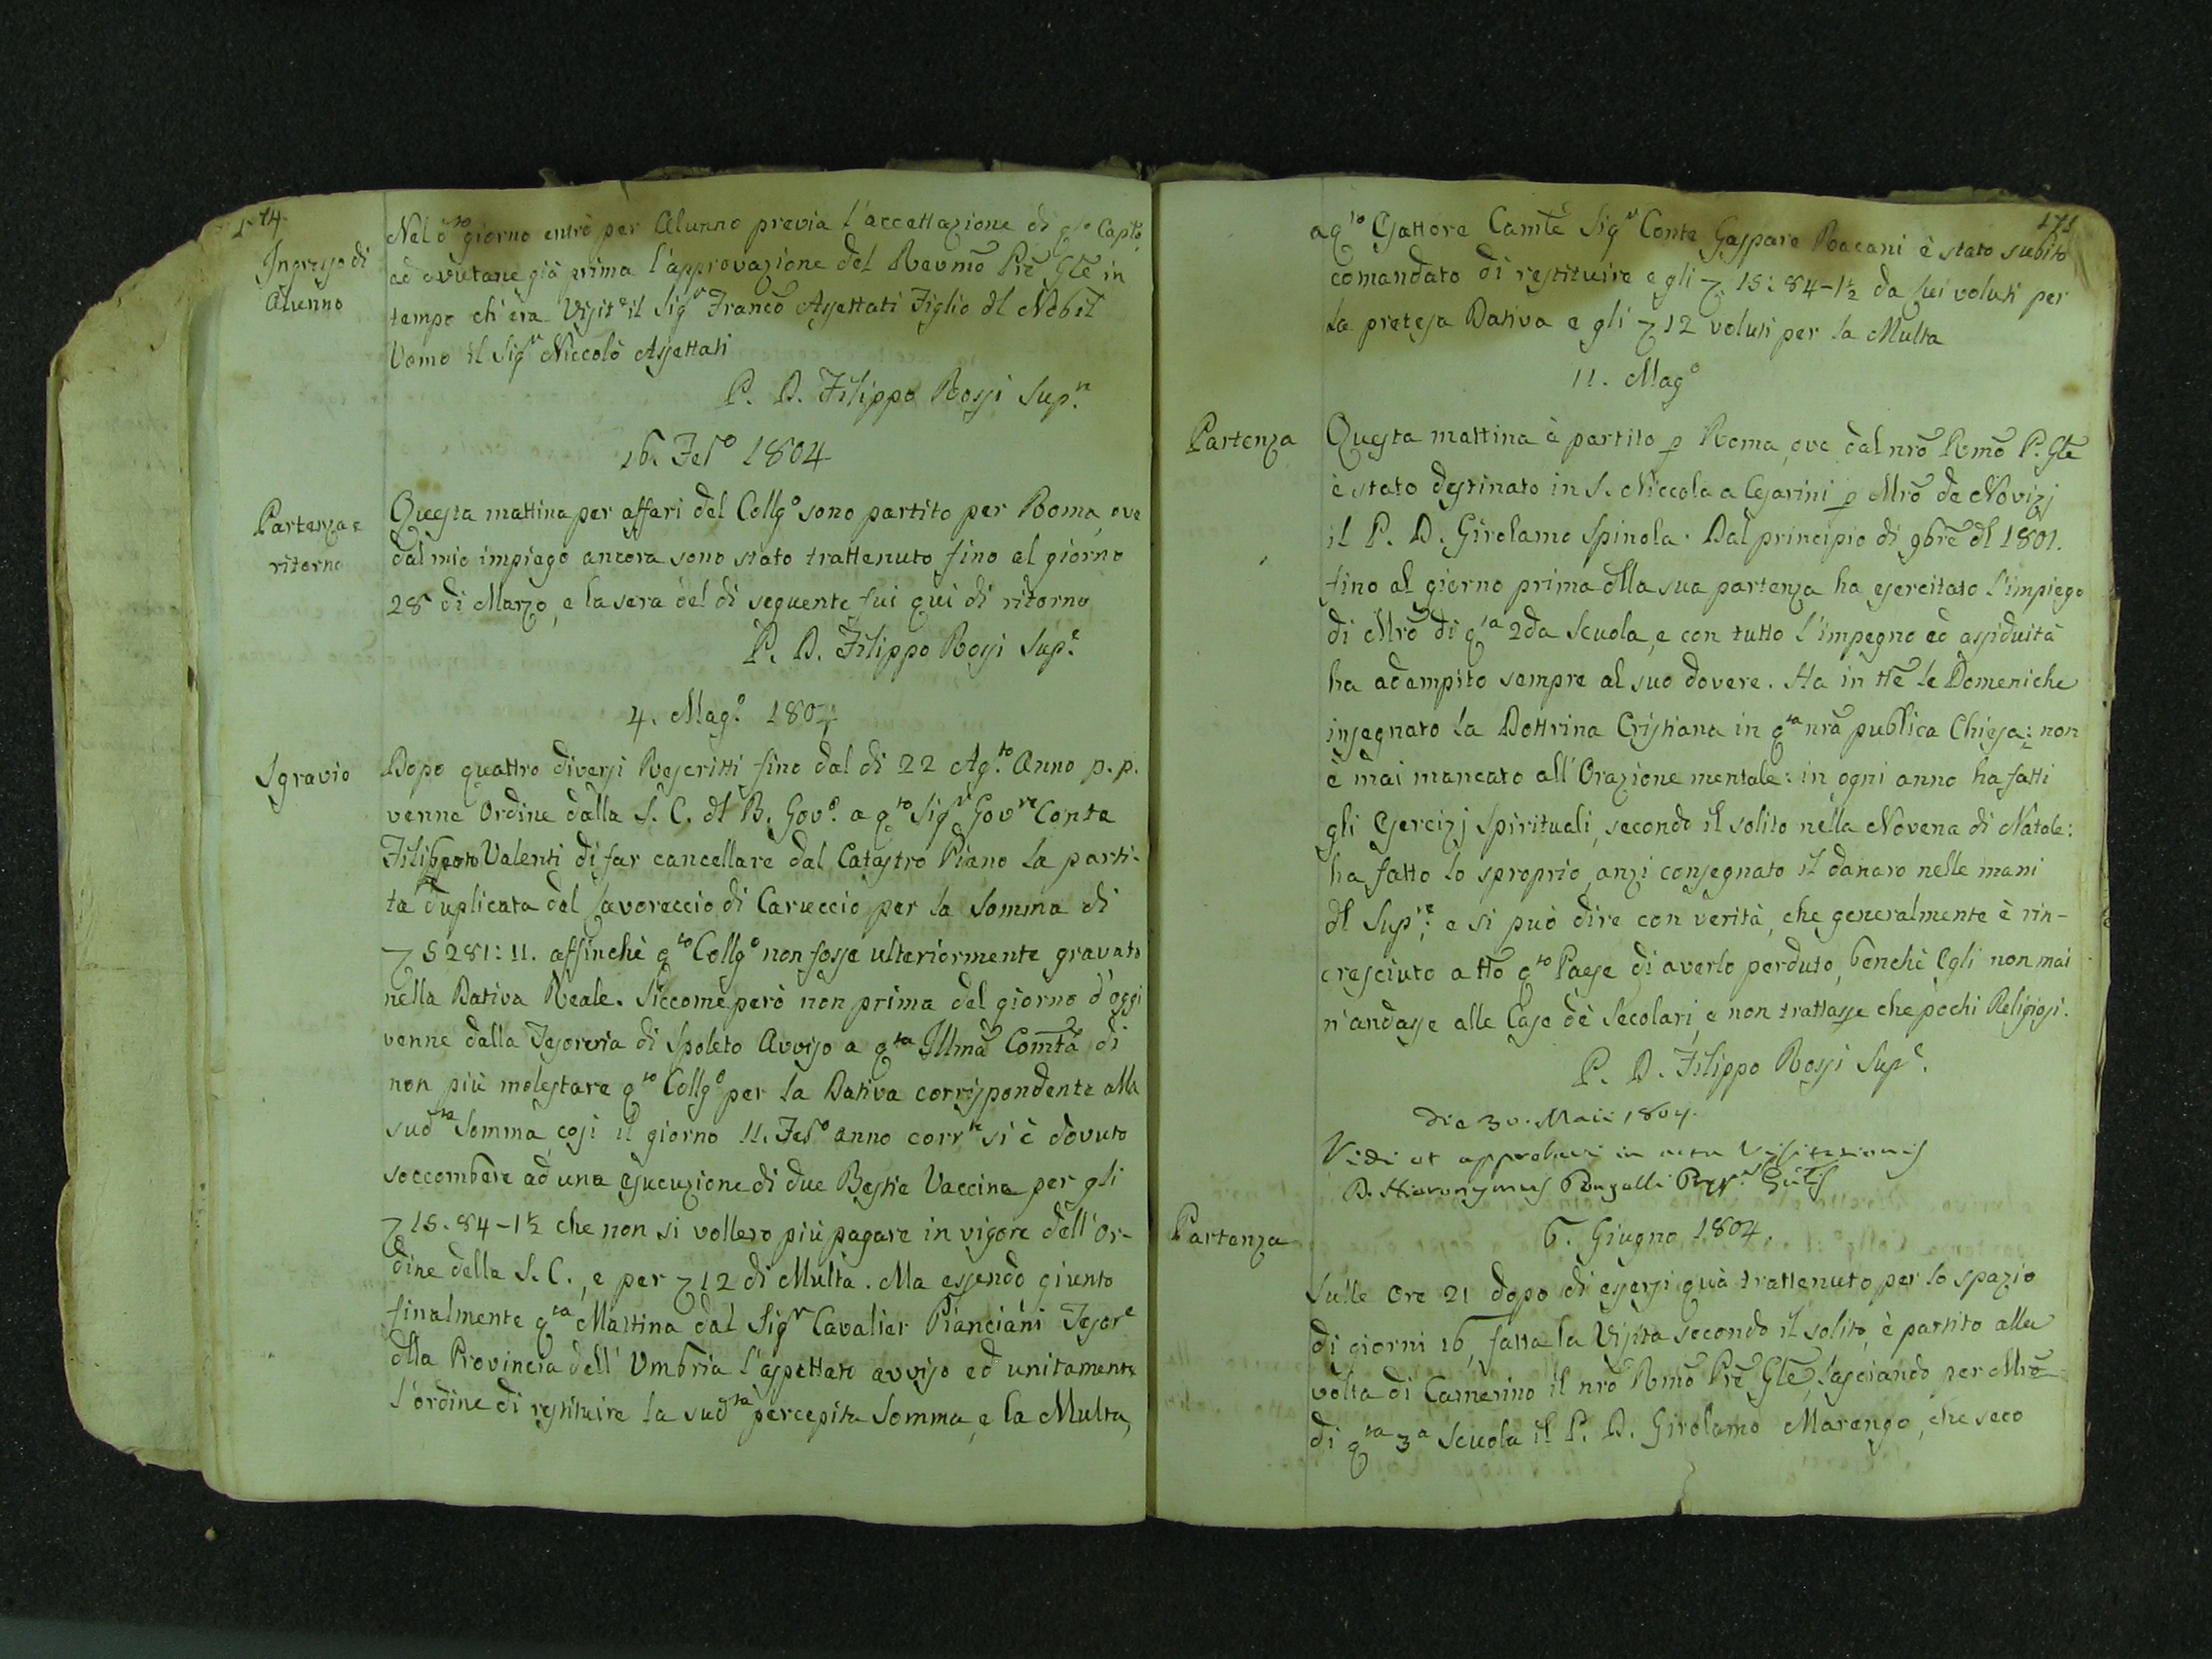 174
Ingresso di
Alunno
Nel dto giorno entrò per Alunno previa l'accettazione di qto Captõ
ed avutane già prima l'approvazione del Revmõ Prẽ Glẽ in
tempo ch'era Visitẽ il Sigr Francõ Assettati Figlio dl Nobil
Uomo il Sigr Niccolò Assettati
P. D. Filippo Rossi Supre
16. Febo 1804
Partenza e
ritorno
Questa mattina per affari del Collgo sono partito per Roma, ove
dal mio impiego ancora sono stato trattenuto fino al giorno
28 di Marzo, e la sera del dì seguente fui quì di ritorno
P. D. Filippo Rossi Supe
4. Mago 1804
Sgravio
Dopo quattro diversi Rescritti fino dal dì 22 Agto Anno p. p.
venne Ordine dalla S. C. dl B. Govo a qto Sigr Govre Conte
Filiberto Valenti di far cancellare dal Catastro Piano la parti-
ta duplicata del Lavoreccio di Caruccio per la Somma di
5281:11. affinchè qto Collgo non fosse ulteriormente gravato
nella Dativa Reale. Siccome però non prima del giorno d'oggi
venne dalla Tesoreria di Spoleto Avviso a qta Illmã Comtã di
non più molestare qto Collgo per la Dativa corrispondente alla
sudta Somma, così il giorno 11. Febo anno corrte si è dovuto
soccombere ad una esecuzione di due Bestie Vaccine per gli
15.84-1½ che non si vollero più pagare in vigore dell'Or-
dine della S. C., e per 12 di Multa. Ma essendo giunto
finalmente qta Mattina dal Sigr Cavalier Pianciani Tesore
dlla Provincia dell'Umbria l'aspettato avviso ed unitamente
l'ordine di restituire la sudta percepita Somma, e la Multa,
175
a qto Esattore Camlẽ Sigr Conte Gaspare Racani è stato subito
comandato di restituire e gli 15:84-1½ da lui voluti per
la pretesa Dativa e gli 12 voluti per la Multa
11. Mago
Partenza
Questa mattina è partito p Roma, ove dal nrõ Rmõ P. Glẽ
è stato destinato in S. Niccola a Cesarini p Mrõ de Novizj
il P. D. Girolamo Spinola. Dal principio di 9brẽ dl 1801.
fino al giorno prima dlla sua partenza ha esercitato l'impiego
di Mrõ di qta 2da Scuola, e con tutto l'impegno ed assiduità
ha adempito sempre al suo dovere. Ha in ttẽ le Domeniche
insegnato la Dottrina Cristiana in qta nrã publica Chiesa: non
è mai mancato all'Orazione mentale: in ogni anno ha fatti
gli Esercizj Spirituali, secondo il solito nella Novena di Natale:
ha fatto lo sproprio, anzi consegnato il danaro nelle mani
dl Supre: e si può dire con verità, che generalmente è rin-
cresciuto a ttõ qto Paese di averlo perduto, benchè Egli non mai
n'andasse alle Case de' Secolari, e non trattasse che pochi Religiosi.
P. D. Filippo Rossi Supe.
Die 30. Maii 1804.
Vidi et approbavi in actu Visitationis
D. Hieronymus Pongelli Glis
Partenza
6. Giugno 1804.
Sulle Ore 21 dopo di essersi quà trattenuto per lo spazio
di giorni 16, fatta la Visita secondo il solito, è partito alla
volta di Camerino il nrõ Rmõ Prẽ Glẽ, lasciando per Mrõ
di qta 3a Scuola il P. D. Girolamo Marengo, che seco